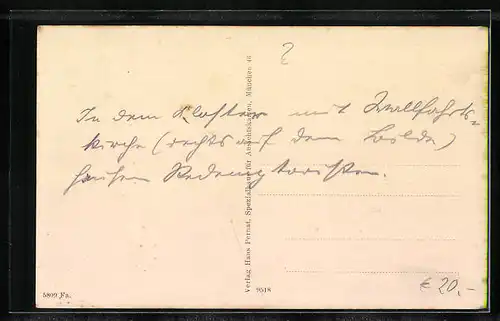 2
In dem Kloster mit Wallfahrts-
kirche (rechts auf dem Bilde)
hausen Redemptoristen.
Verlag Hans Pernat, Spezialhaus für Ansichtskarten, München 46
5809 Fa.
9518
€ 20,-